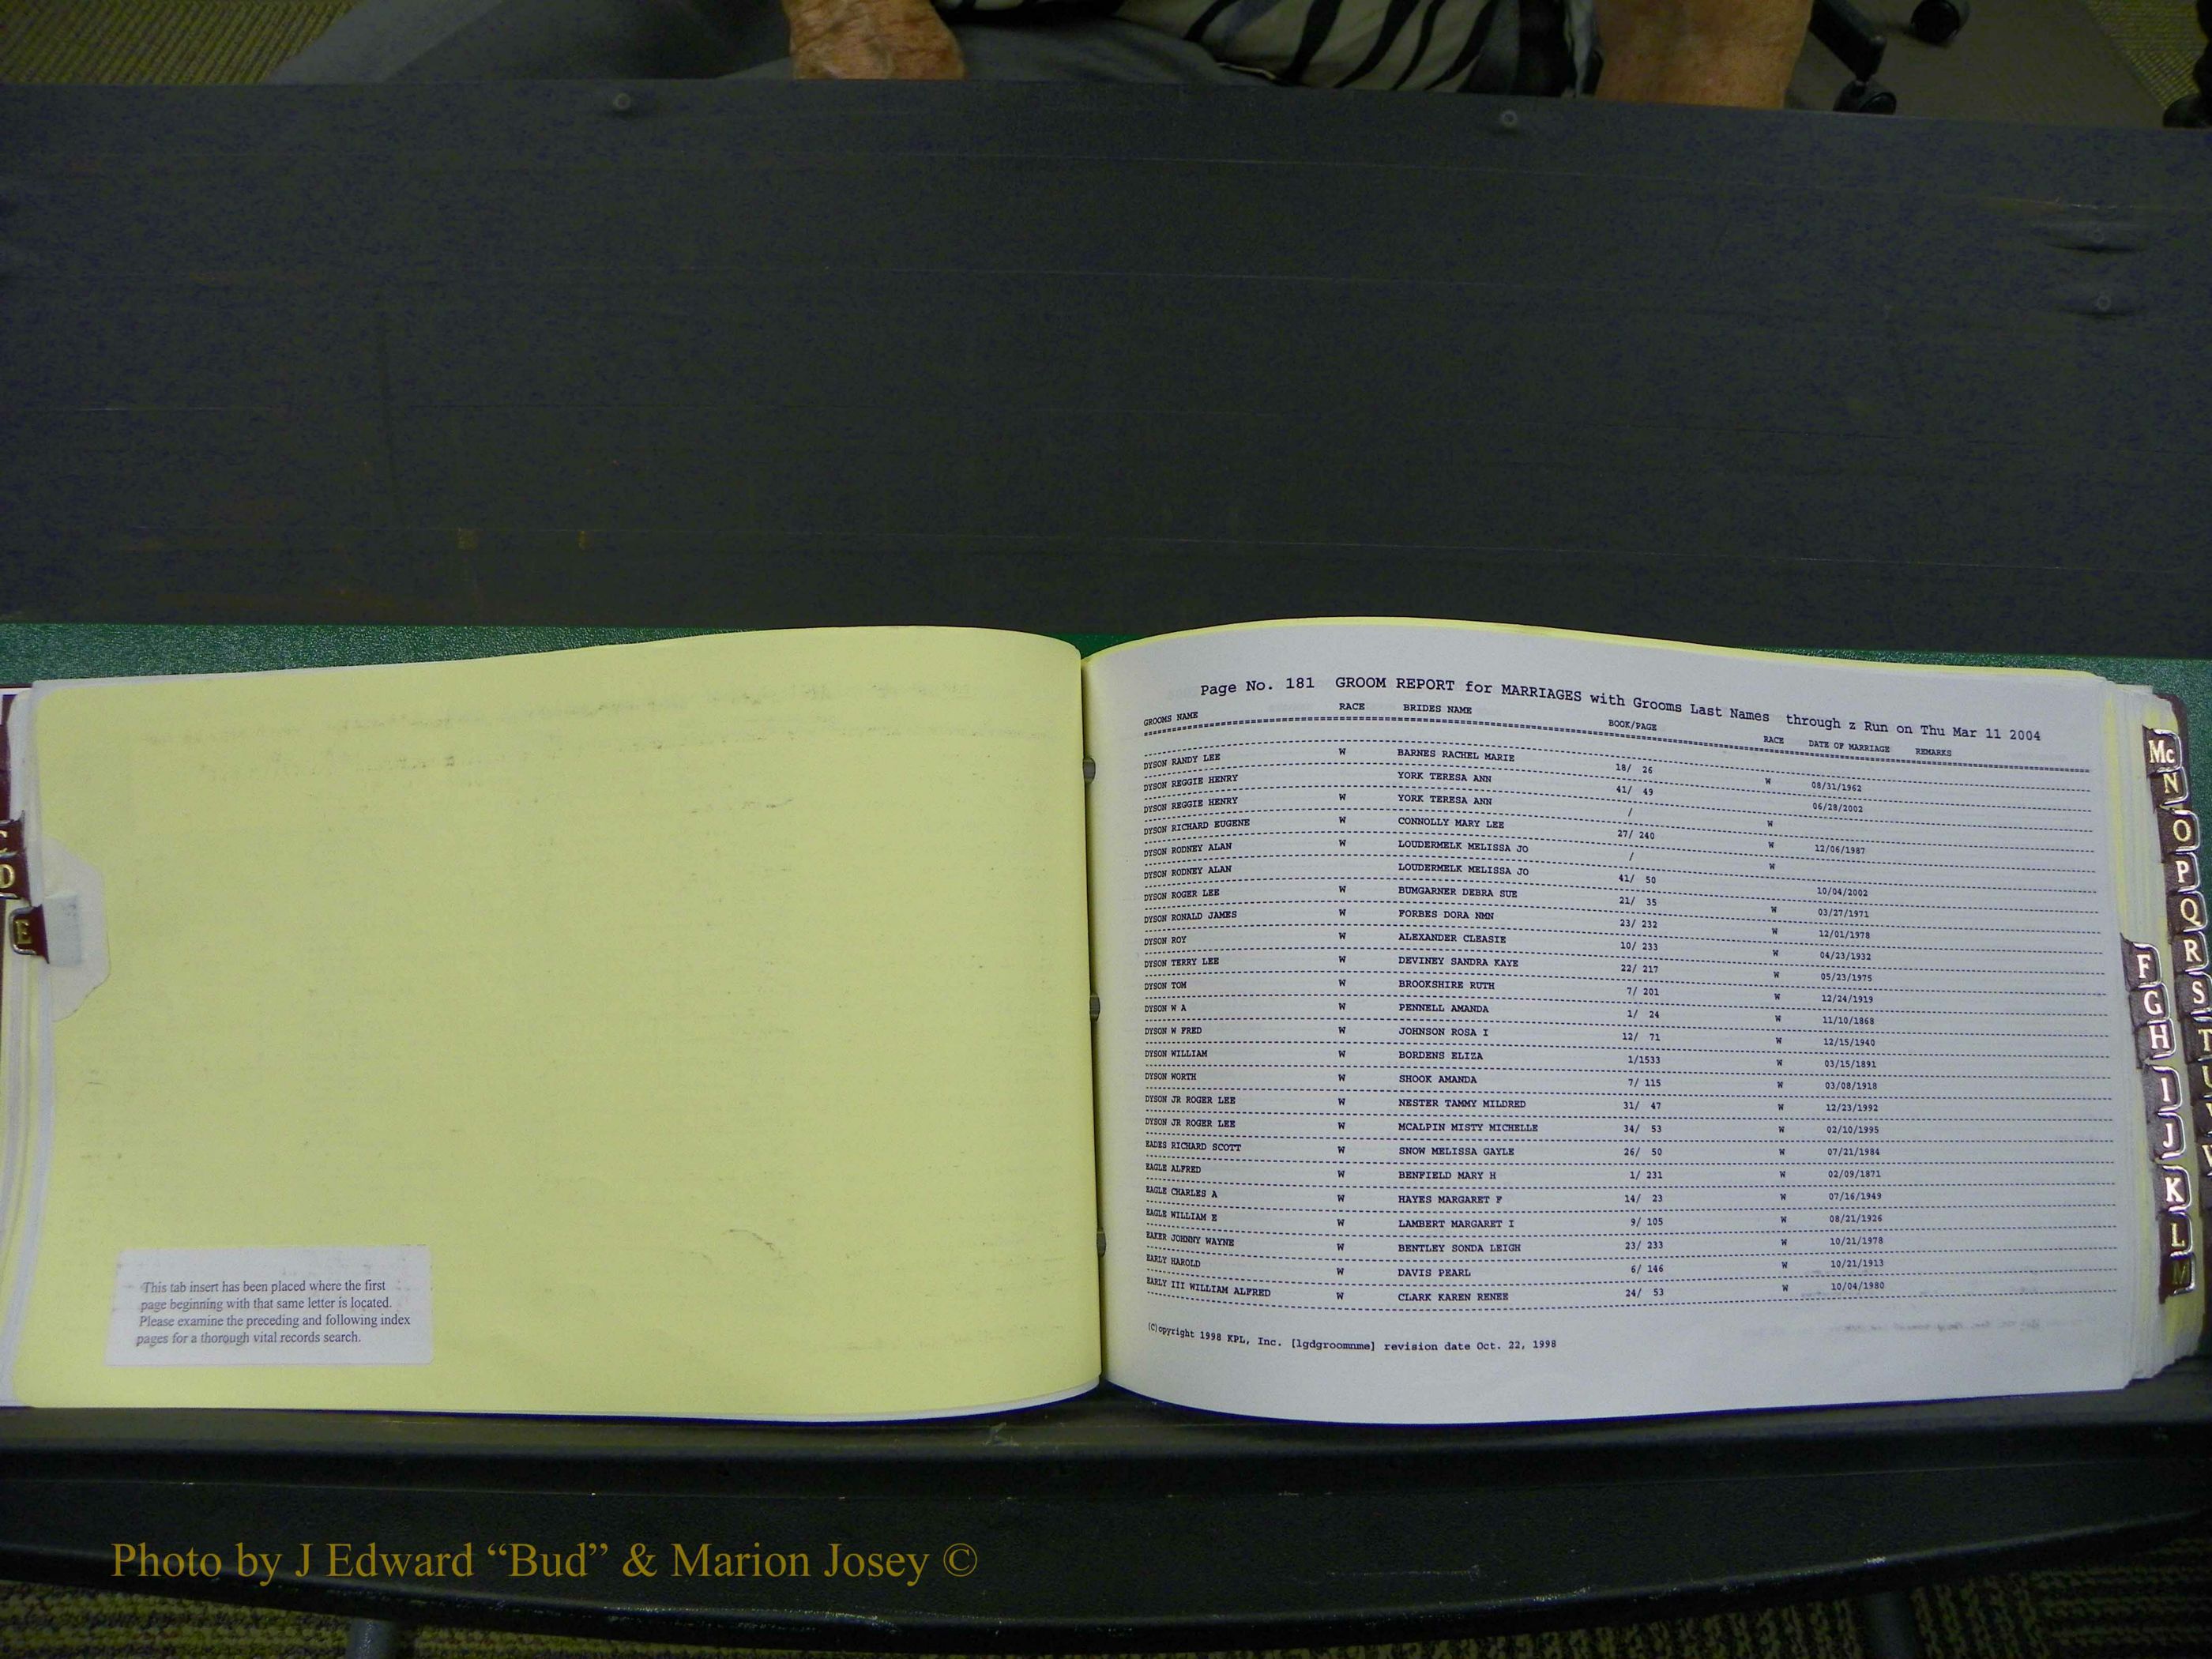 Page No. 181 GROOM REPORT for MARRIAGES with Grooms Last Names through z Run on Thu Mar 11 2004
GROOMS NAME RACE BRIDES NAME BOOK/PAGE RACE DATE OF MARRIAGE REMARKS
DYSON RANDY LEE W BARNES RACHEL MARIE 18/ 26 W 08/31/1962
DYSON REGGIE HENRY YORK TERESA ANN 41/ 49 06/28/2002
DYSON REGGIE HENRY W YORK TERESA ANN / W
DYSON RICHARD EUGENE W CONNOLLY MARY LEE 27/ 240 W 12/06/1987
DYSON RODNEY ALAN W LOUDERMELK MELISSA JO / W
DYSON RODNEY ALAN LOUDERMELK MELISSA JO 41/ 50 10/04/2002
DYSON ROGER LEE W BUMGARNER DEBRA SUE 21/ 35 W 03/27/1971
DYSON RONALD JAMES W FORBES DORA NMN 23/ 232 W 12/01/1978
DYSON ROY W ALEXANDER CLEASIE 10/ 233 W 04/23/1932
DYSON TERRY LEE W DEVINEY SANDRA KAYE 22/ 217 W 05/23/1975
DYSON TOM W BROOKSHIRE RUTH 7/ 201 W 12/24/1919
DYSON W A W PENNELL AMANDA 1/ 24 W 11/10/1868
DYSON W FRED W JOHNSON ROSA I 12/ 71 W 12/15/1940
DYSON WILLIAM W BORDENS ELIZA 1/1533 W 03/15/1891
DYSON WORTH W SHOOK AMANDA 7/ 115 W 03/08/1918
DYSON JR ROGER LEE W NESTER TAMMY MILDRED 31/ 47 W 12/23/1992
DYSON JR ROGER LEE W MCALPIN MISTY MICHELLE 34/ 53 W 02/10/1995
EADES RICHARD SCOTT W SNOW MELISSA GAYLE 26/ 50 W 07/21/1984
EAGLE ALFRED W BENFIELD MARY H 1/ 231 W 02/09/1871
EAGLE CHARLES A W HAYES MARGARET F 14/ 23 W 07/16/1949
EAGLE WILLIAM E W LAMBERT MARGARET I 9/ 105 W 08/21/1926
EAKER JOHNNY WAYNE W BENTLEY SONDA LEIGH 23/ 233 W 10/21/1978
EARLY HAROLD W DAVIS PEARL 6/ 146 W 10/21/1913
EARLY III WILLIAM ALFRED W CLARK KAREN RENEE 24/ 53 W 10/04/1980
(C)opyright 1998 KPL, Inc. [lgdgroomnme] revision date Oct. 22, 1998
C
D
E
This tab insert has been placed where the first
page beginning with that same letter is located.
Please examine the preceding and following index
pages for a thorough vital records search.
F
G
H
I
J
K
L
M
Mc
N
O
P
Q
R
S
T
U
V
Photo by J Edward “Bud” & Marion Josey ©